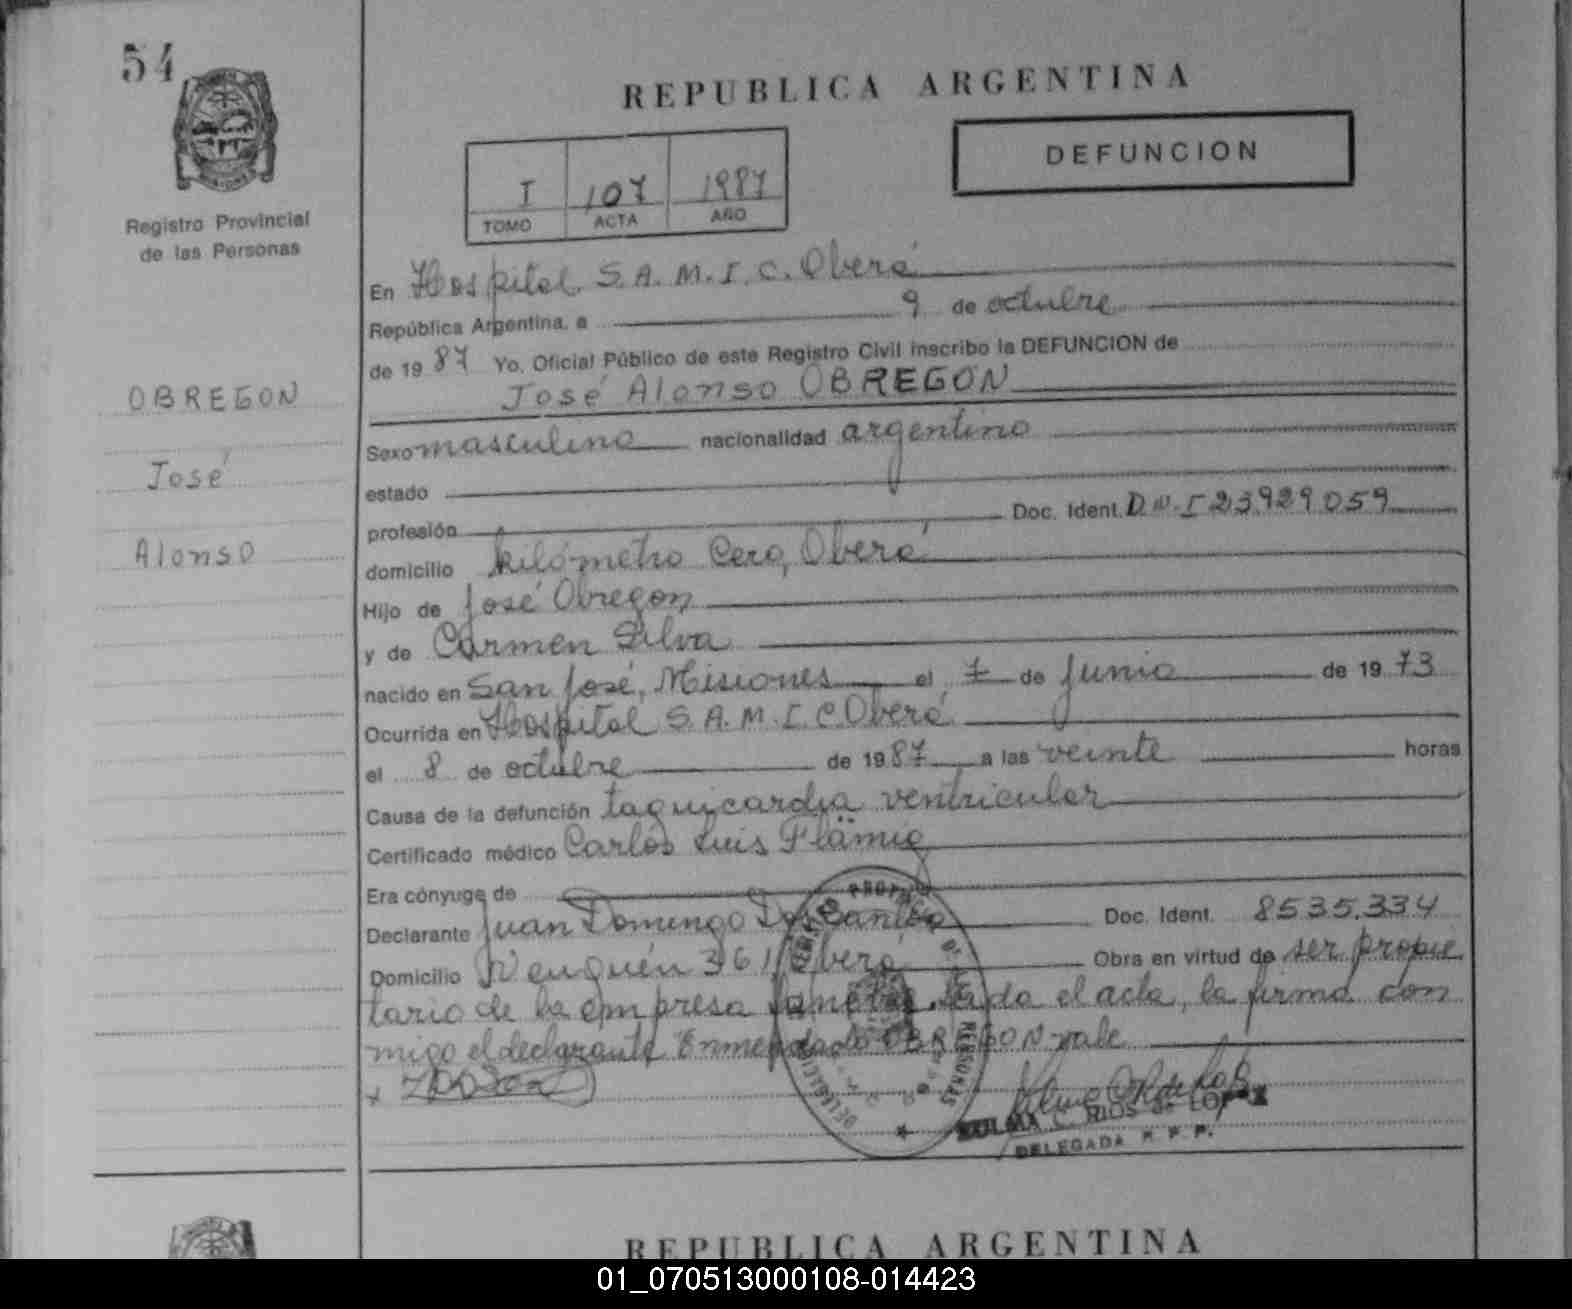 54
REPUBLICA ARGENTINA
DEFUNCION
I 107 1987
TOMO ACTA AÑO
Registro Provincial
de las Personas
En Hospital S.A.M.I.C. Oberá
República Argentina, a 9 de octubre
de 1987 Yo, Oficial Público de este Registro Civil inscribo la DEFUNCION de
José Alonso OBREGON
OBREGON
José
Alonso
Sexo masculino nacionalidad argentino
estado
profesión Doc. Ident. D.N.I 23.929.059
domicilio kilómetro Cero, Oberá
Hijo de José Obregon
y de Carmen Silva
nacido en San José, Misiones el 7 de junio de 1973
Ocurrida en Hospital S.A.M.I.C. Oberá
el 8 de octubre de 1987 a las veinte horas
Causa de la defunción taquicardia ventricular
Certificado médico Carlos Luis
Era cónyuge de
Declarante Juan Domingo Dos Santos Doc. Ident. 8535.334
Domicilio Neuquén 361 Oberá Obra en virtud de ser propie
tario de la empresa el acta, la firma con
migo el declarante Enmendado OBREGON vale
RIOS de LOPEZ
DELEGADA R.P.P.
REPUBLICA ARGENTINA
01_070513000108-014423